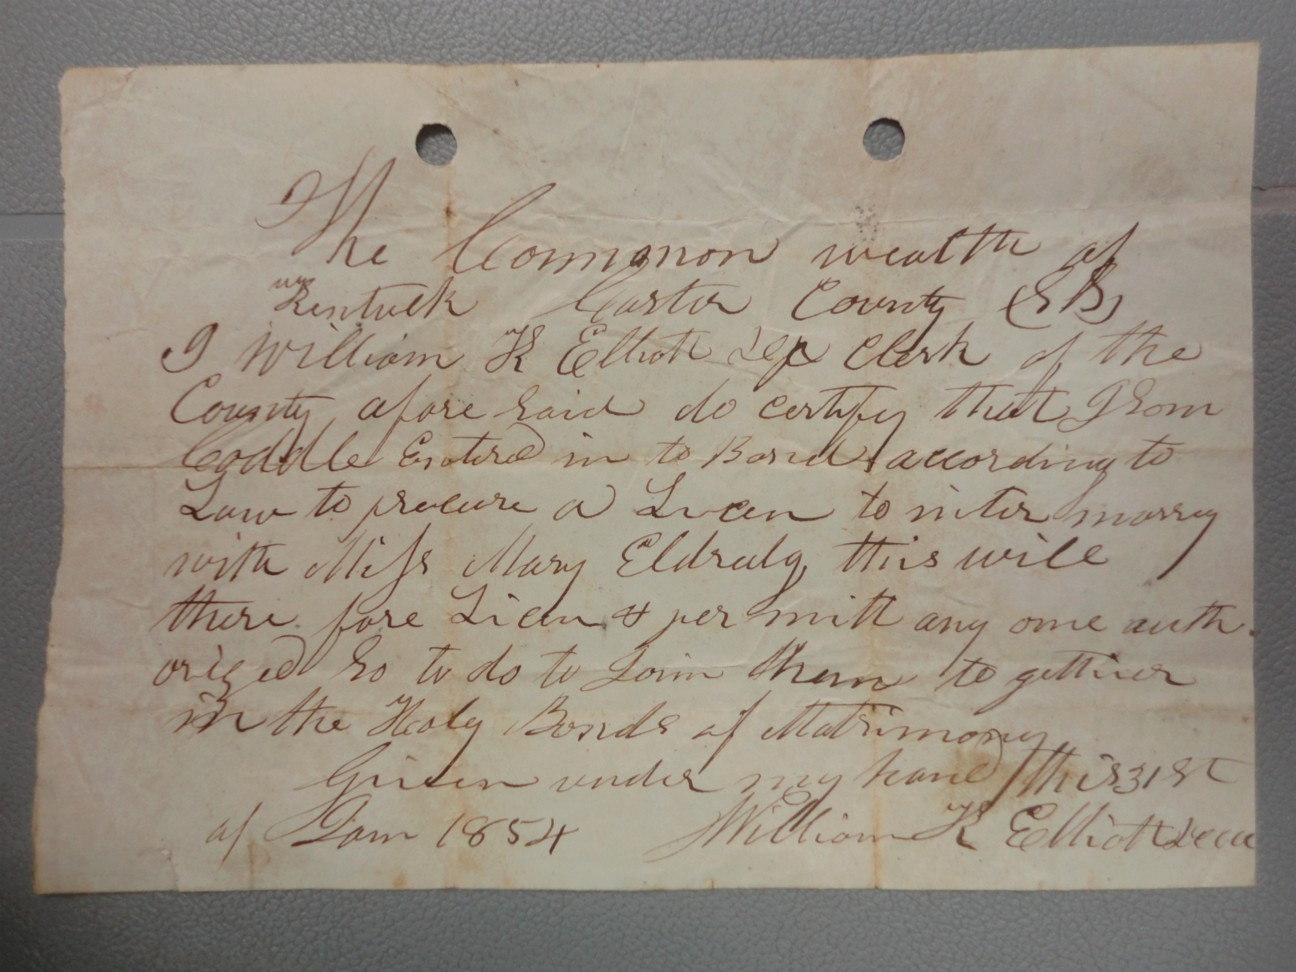 The Common wealth of
Kentuck Carter County
I William K Elliott Dep Clerk of the
County afore Said do certify that
Coddle Entered in to Bond according to
Law to procure a Licen to inter marry
with Miss Mary this will
there fore Licen & per mitt any one auth
orized So to do to Join them to gether
in the Holy Bonds of Matrimony
Given under my hand this 31 St
of Jan 1854 William K Elliott